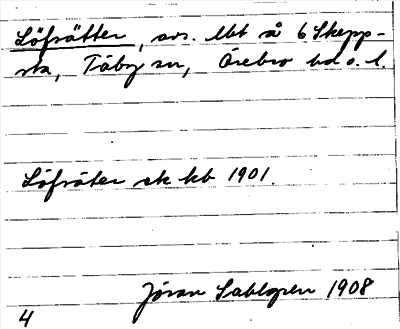 Löfsätter, avs. lht å 6 Skepp-
sta, Täby sn, Örebro hd o. l.
Löfsäter ek kb 1901.
Jöran Sahlgren 1908
4